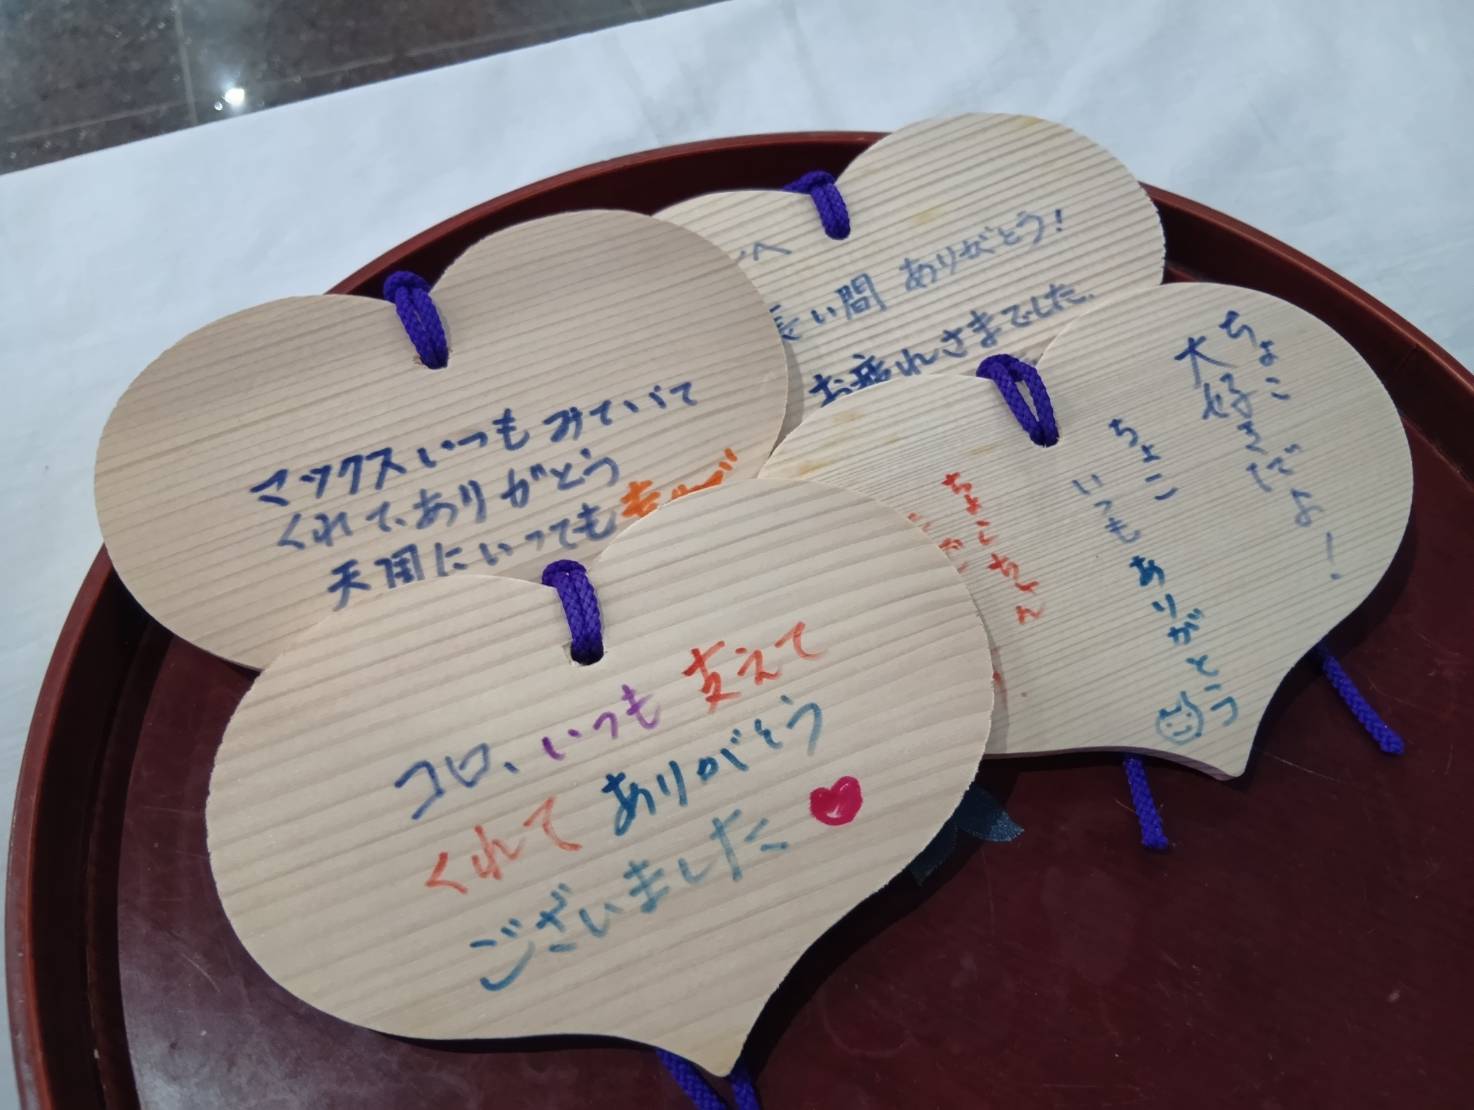 マックスいつもみていて
くれてありがとう
天国にいっても
へ
長い間 ありがとう!
お疲れさまでした。
ちょこ
大好きだよ!
ちょこ
いつもありがとう
ちょこちゃん
コロ、いつも支えて
くれてありがとう
ございました